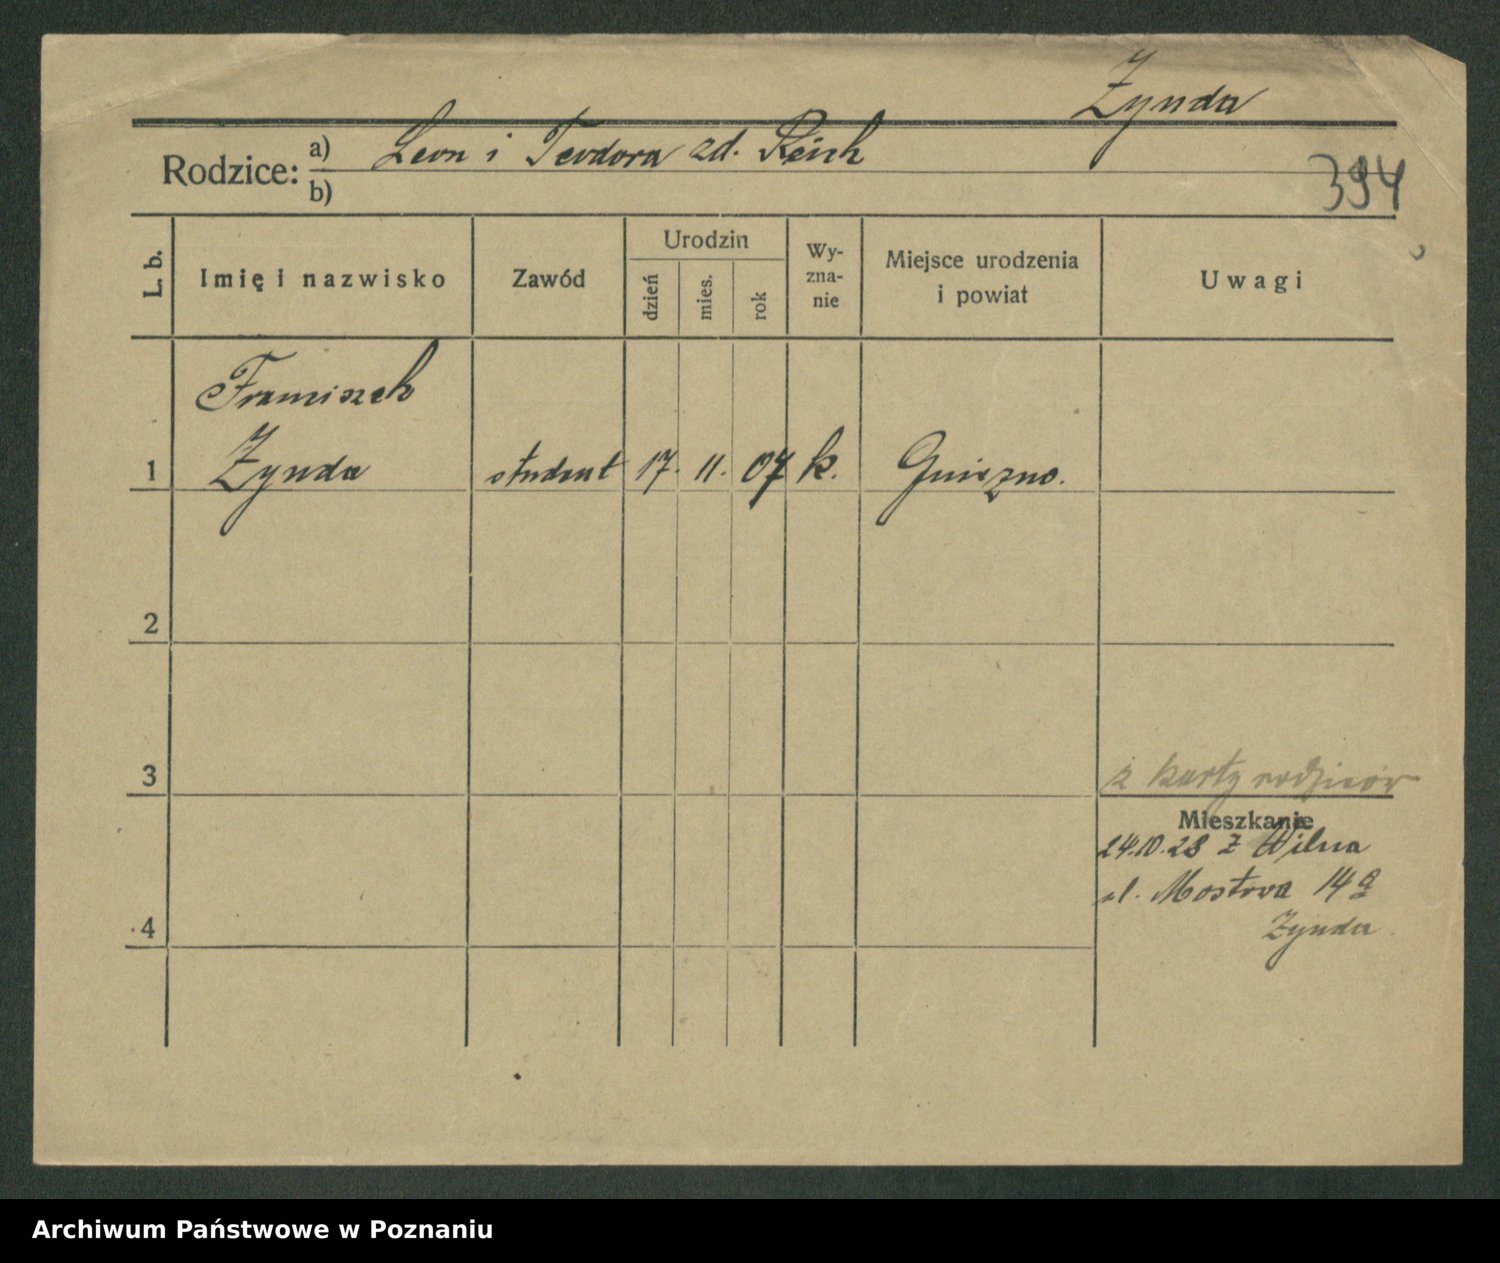 Zynda
Rodzice: a) Leon i Teodora zd. Reich
b)
394
L. b.
Imię i nazwisko
Zawód
Urodzin
dzień
mies.
rok
Wy-
zna-
nie
Miejsce urodzenia
i powiat
Uwagi
Franciszek
1 Zynda student 17. 11. 07 k. Gniezno.
2
3
z karty rodziców
Mieszkanie
24.10.28 z Wilna
ul. Mostowa 14a
Zynda
4
Archiwum Państwowe w Poznaniu